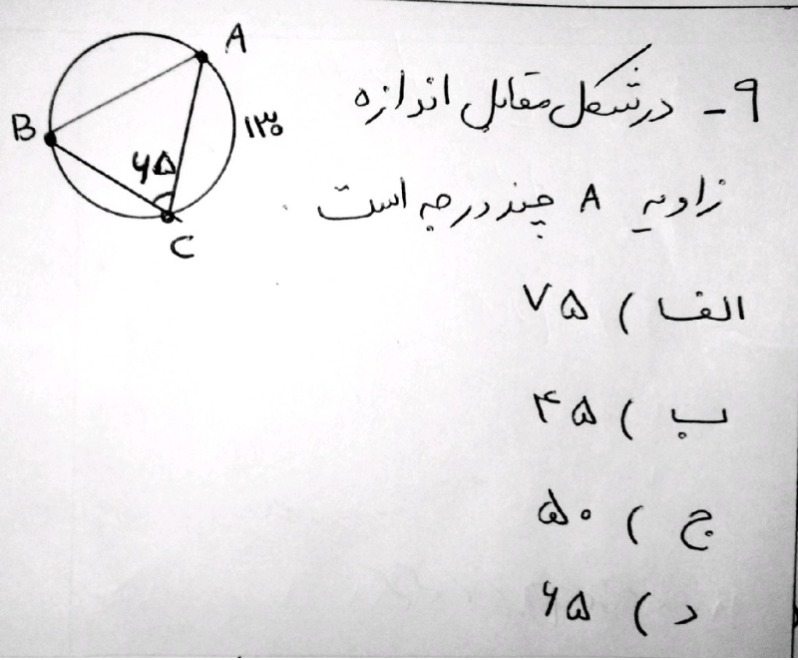 A
B
۱۳۰
۶۵
C
۹- در شکل مقابل اندازه
زاویه A چند درجه است
الف) ۷۵
ب) ۴۵
ج) ۵۰
د) ۶۵